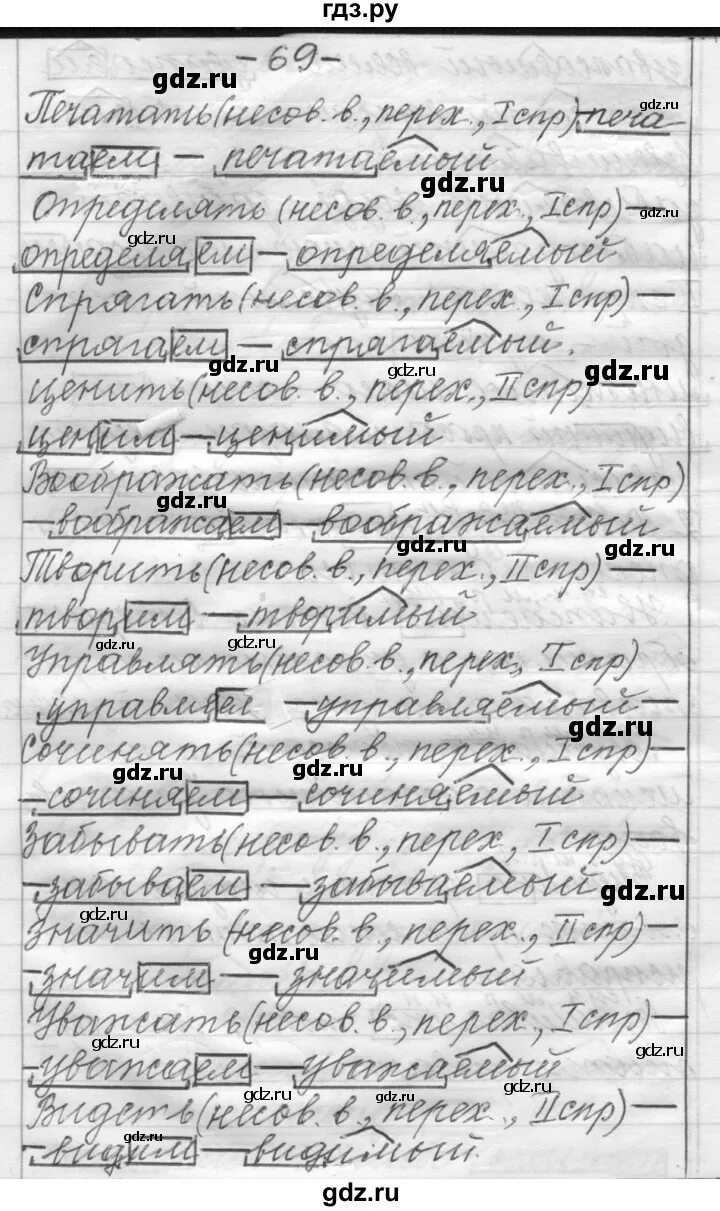 гдз.ру
- 69 -
gdz.ru
Печатать (несов. в., перех., I спр) печа-
gdz.ru
таем — печатаемый
gdz.ru
Определять (несов. в., перех., I спр) —
gdz.ru
gdz.ru
определяем — определяемый
Спрягать (несов. в., перех., I спр) —
спрягаем — спрягаемый.
gdz.ru
gdz.ru
gdz.ru
ценить (несов. в., перех., II спр) —
ценим — ценимый
Воображать (несов. в., перех., I спр)
gdz.ru
— воображаем — воображаемый
gdz.ru
gdz.ru
Творить (несов. в., перех., II спр) —
творим — творимый
gdz.ru
gdz.ru
Управлять (несов. в., перех, I спр)
управляем управляемый —
gdz.ru
Сочинять (несов. в., перех., I спр) —
gdz.ru
gdz.ru
— сочиняем — сочиняемый
Забывать (несов. в., перех, I спр) —
— забываем — забываемый
gdz.ru
gdz.ru
Значить (несов. в., перех., II спр) —
gdz.ru
— значим — значимый
Уважать (несов. в., перех., I спр) —
gdz.ru
gdz.ru
— уважаем — уважаемый
gdz.ru
gdz.ru
Видеть (несов. в., перех., II спр) —
gdz.ru
gdz.ru
— видим — видимый.
gdz.ru